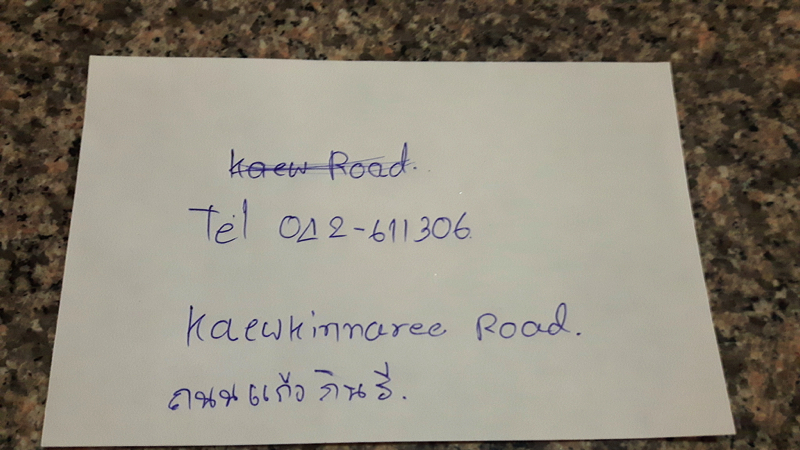 Kaew Road.
Tel 042-611306
Kaewkinnaree Road.
ถนนแก้วกินรี.